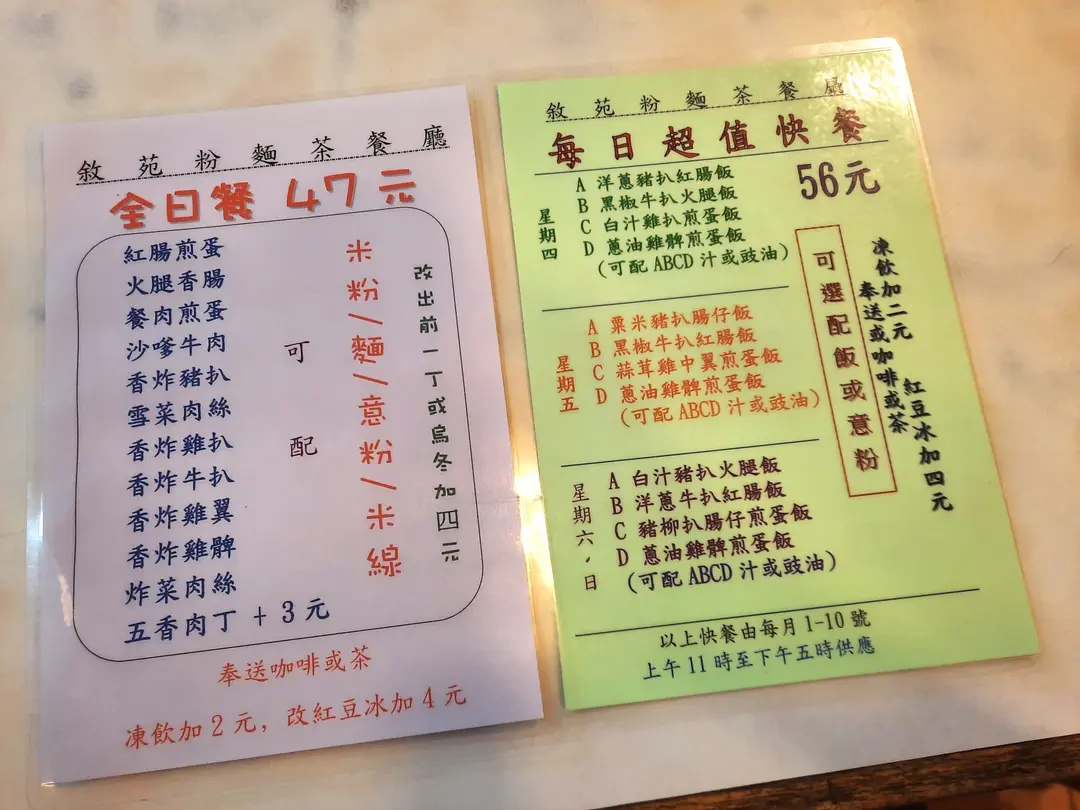 敘苑粉麵茶餐廳
全日餐 47元
紅腸煎蛋
火腿香腸
餐肉煎蛋
沙嗲牛肉
香炸豬扒
雪菜肉絲
香炸雞扒
香炸牛扒
香炸雞翼
香炸雞髀
炸菜肉絲
五香肉丁 + 3元
可配
米粉/麵/意粉/米線
改出前一丁或烏冬加四元
奉送咖啡或茶
凍飲加2元, 改紅豆冰加4元
敘苑粉麵茶餐廳
每日超值快餐
56元
星期四
A 洋蔥豬扒紅腸飯
B 黑椒牛扒火腿飯
C 白汁雞扒煎蛋飯
D 蔥油雞髀煎蛋飯
(可配ABCD汁或豉油)
星期五
A 粟米豬扒腸仔飯
B 黑椒牛扒紅腸飯
C 蒜茸雞中翼煎蛋飯
D 蔥油雞髀煎蛋飯
(可配ABCD汁或豉油)
星期六,日
A 白汁豬扒火腿飯
B 洋蔥牛扒紅腸飯
C 豬柳扒腸仔煎蛋飯
D 蔥油雞髀煎蛋飯
(可配ABCD汁或豉油)
可選配飯或意粉
奉送或咖啡或茶
凍飲加二元 紅豆冰加四元
以上快餐由每月1-10號
上午11時至下午五時供應